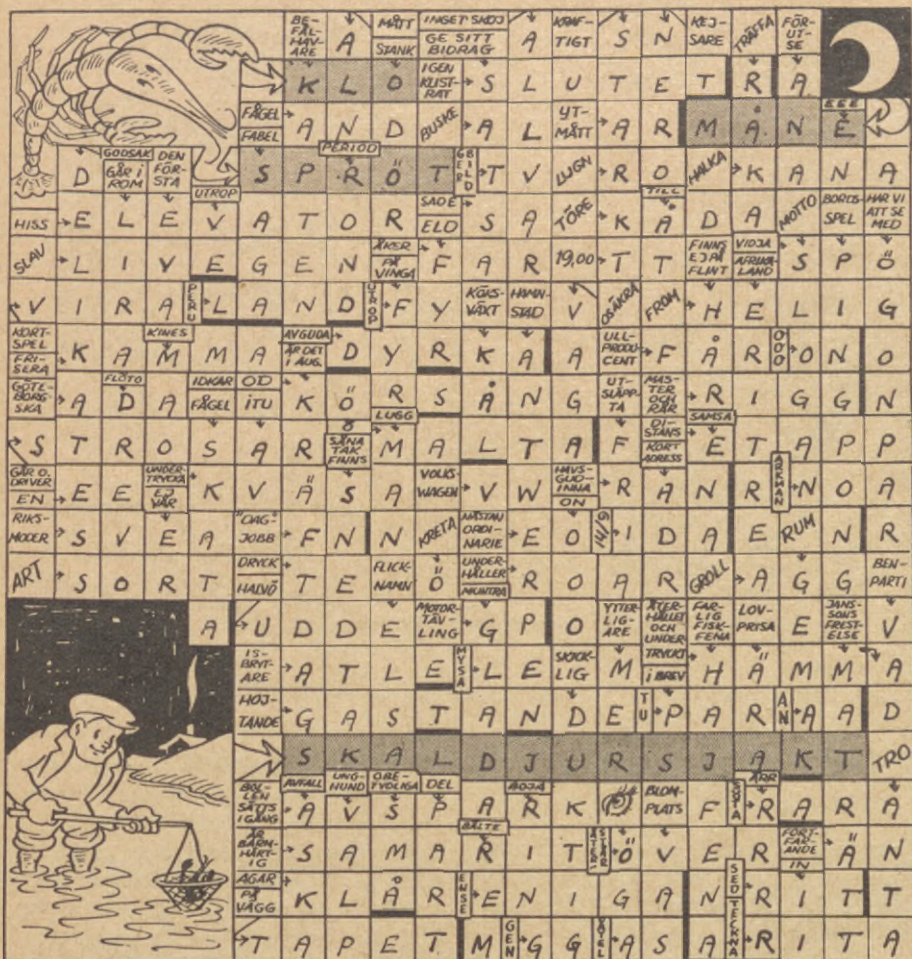 BE-FÄL-HAV-ARE A MÅTT STANK INGET SKOJ GE SITT BIDRAG A KRAF-TIGT S N KEJ-SARE TRÄFFA FÖR-UT-SE
K L O IGEN KLIST-RAT S L U T E T R A
FÅGEL FABEL A N D BUSKE A L YT-MÅTT A R M Å N E EEE
D GODSAK GÅR I ROM DEN FÖR-STA S P R Ö T PERIOD GER BILD T V LUGN R O HALKA K A N A
HISS E L E V A T O R UTROP SADE ELD S A TÖRE K Å D A TILL MOTTO BORDS-SPEL HAR VI ATT SE MED
SLAV L I V E G E N ÅKER PÅ VINGA F A R 19,00 T T FINNS EJ PÅ FLINT VIDJA AFRIKA-LAND S P Ö
V I R A PERU L A N D UTROP F Y KÖKS-VÄXT HAMN-STAD V OSÄKRA FROM H E L I G
KORT-SPEL FRI-SERA K A M M A KINES AVGUDA ÄR DET I AUG. D Y R K A A ULL-PRODU-CENT F Å R OOO O N O
GÖTE-BORG-SKA A D A FLÖTO IDKAR FÅGEL OD ITU K Ö R S Å N G UT-SLÄPP-TA MAS-TER OCH RÅR R I G G N
S T R O S A R SÅNA TAK FINNS LUGG M A L T A F DI-STANS KORT ADRESS SAMSA E T A P P
GÅR O. DRIVER EN E E UNDER-TRYCKA EJ VÅR K V Ä S A VOLKS-WAGEN V W HAVS-GUD-INNA ON R A N R ARKMAN N O A
RIKS-MODER S V E A "DAG" JOBB F N N KRETA NÄSTAN ORDI-NARIE E O 14/9 I D A E RUM N R
ART S O R T DRYCK HALVÖ T E FLICK-NAMN Ö UNDER-HÅLLER MUNTRA R O A R GROLL A G G BEN-PARTI
A U D D E MOTOR-TÄV-LING G P O YTTER-LIG-ARE ÅTER-HÅLLET OCH UNDER-TRYCKT FAR-LIG FISK-FENA LOV-PRISA E JANS-SONS FREST-ELSE V
IS-BRYT-ARE A T L E MYSA L E SKICK-LIG M I BREV H Ä M M A
HÖJ-TANDE G A S T A N D E TU P A R AN A A D
S K A L D J U R S J A K T TRO
BOL-LEN SÄTTS IGÅNG AVFALL A UNG-HUND V OBE-TYDLIGA S DEL P A BOJA R K BLOM-PLATS F R ÄRR A R A
ÄR BARM-HÄRT-IG S A M A R I T BÄLTE Ö V E R FORT-FAR-ANDE IN Ä N
AGAR PÅ VÄGG K L Å R ENSE E N I G A N R I T T
T A P E T M GEN G G A S A SED TECKNA R I T A